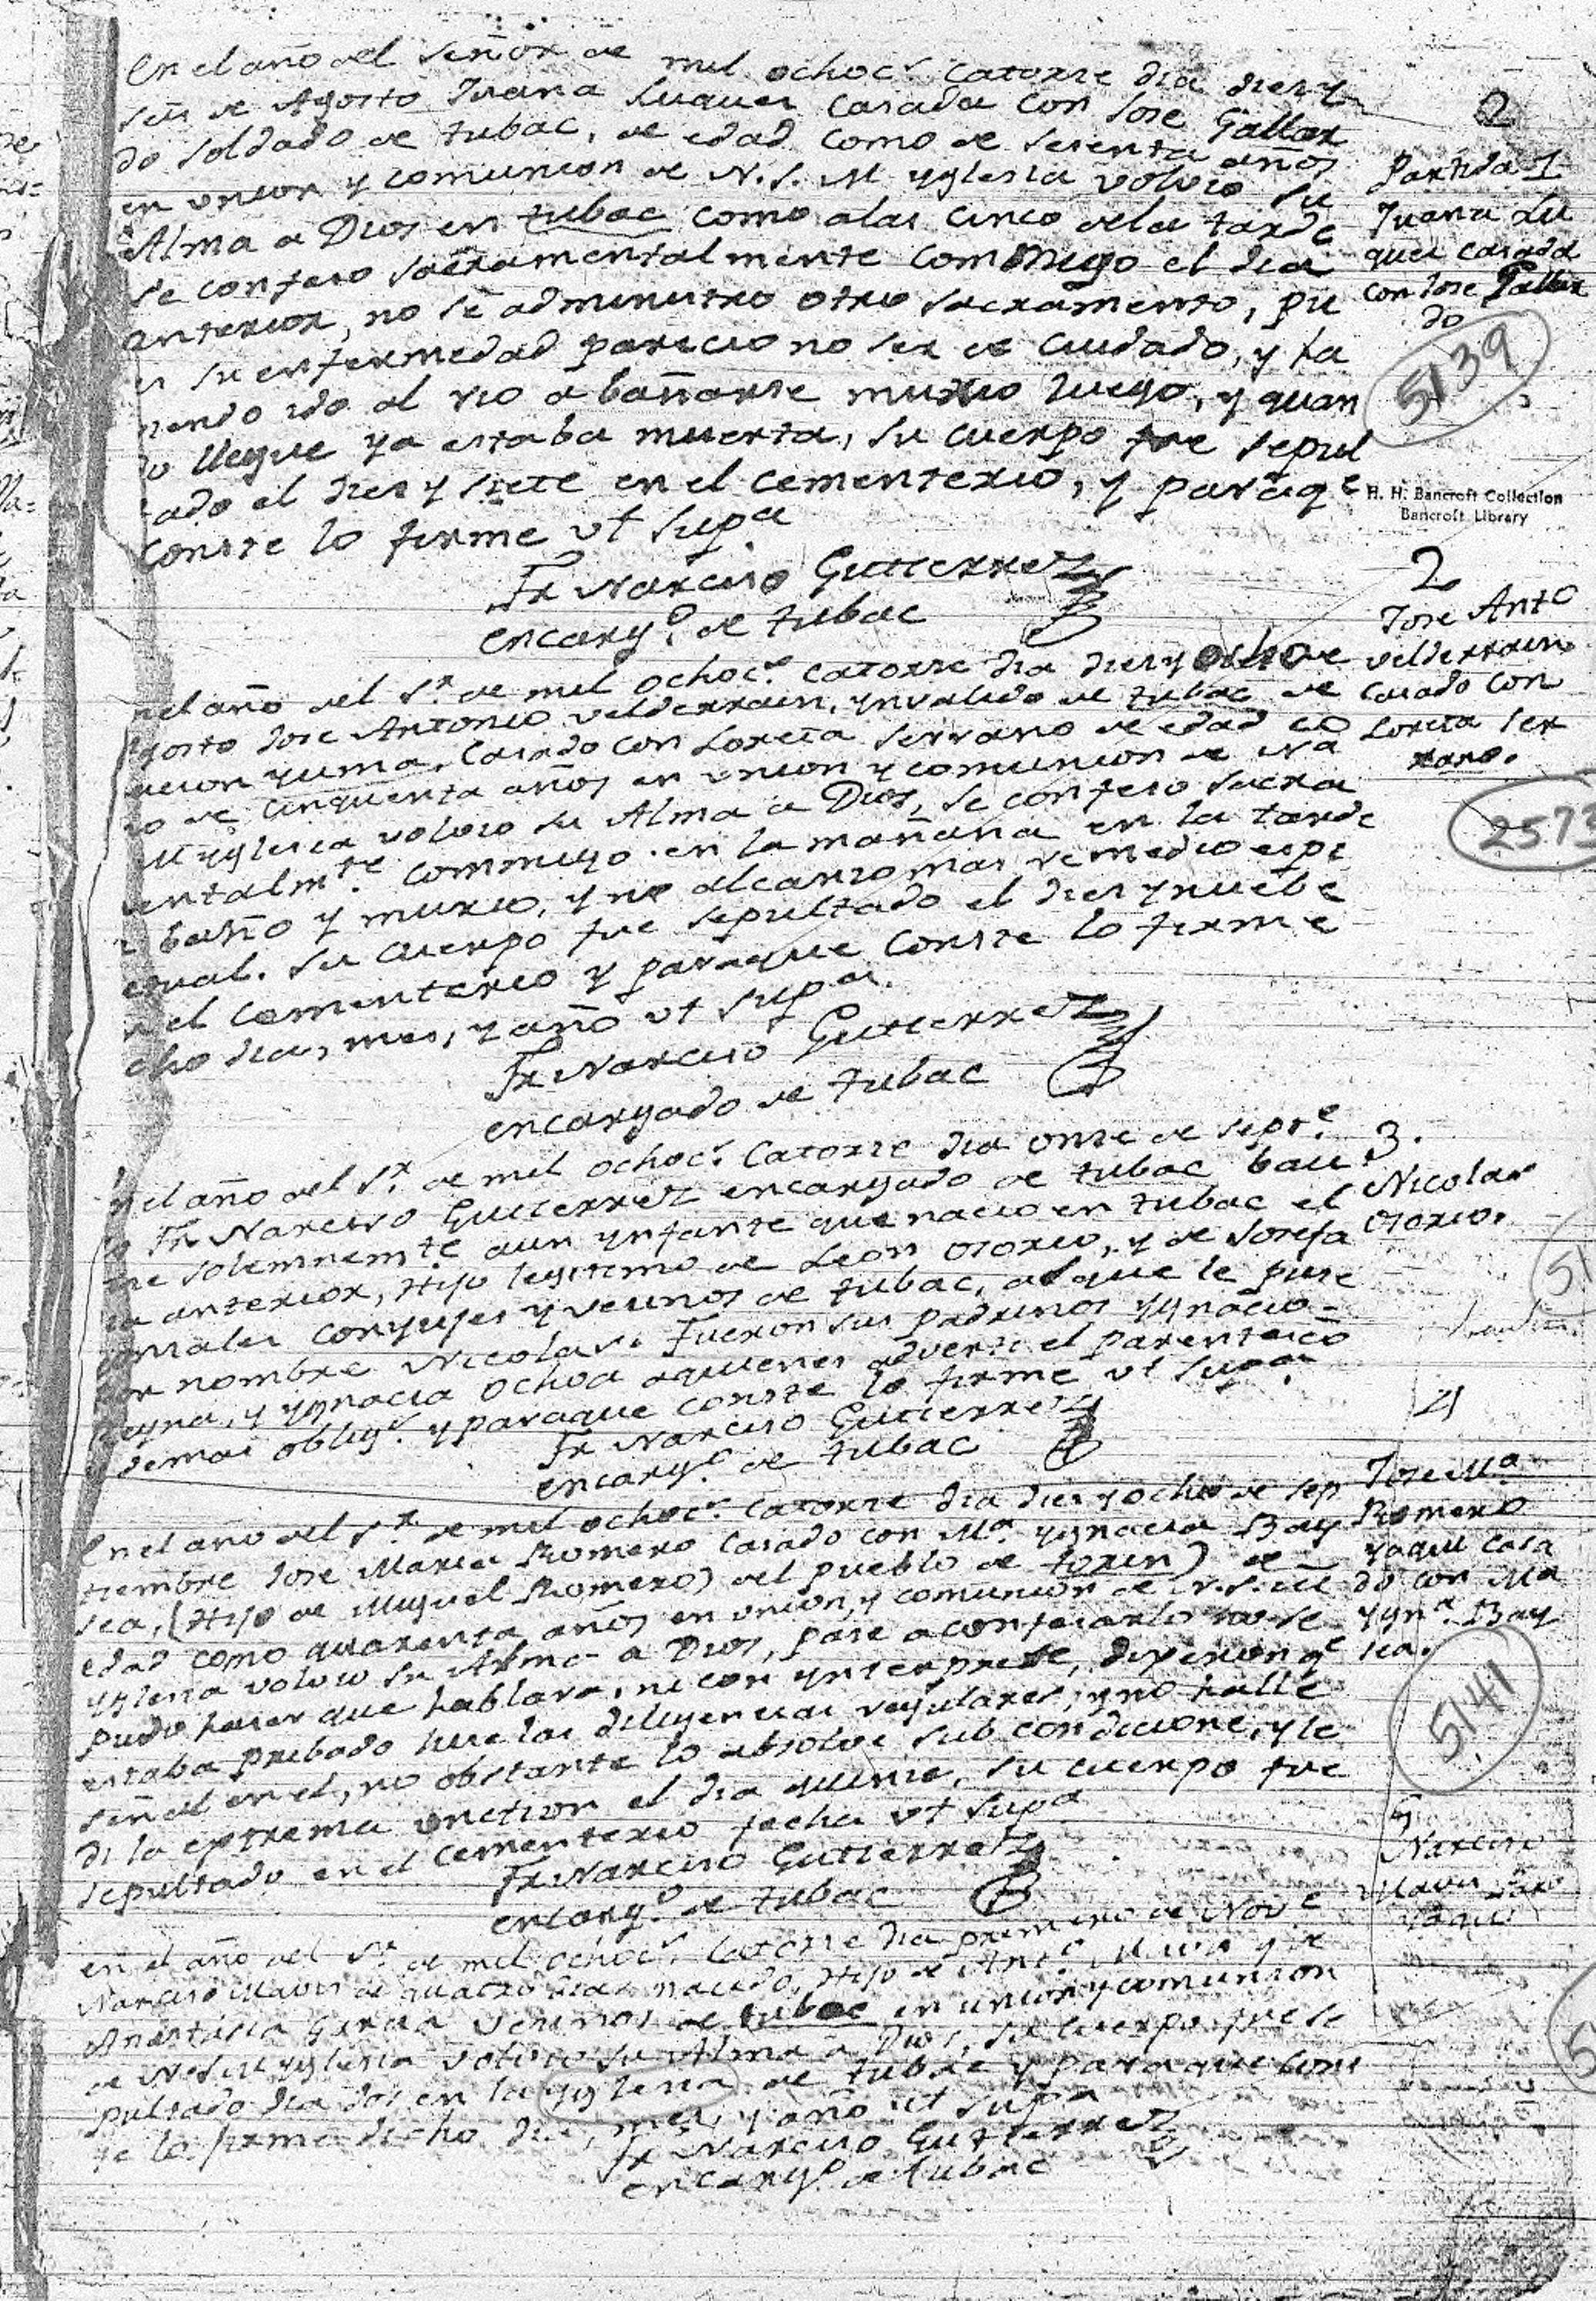 En el año del Señor de mil ochoc.s Catorze dia dies y
seis de Agosto Juana Luquez Casada con Jose Gallar
do soldado de tubac, de edad como de sesenta años
en union y comunion de N. S. M yglesia volvio su
Alma a Dios en tubac como a las cinco de la tarde
se confeso sacramentalmente commigo el dia
anterior, no se administro otro sacramento, pu
es su enfermedad parecio no ser de cuidado, y ha
viendo ido al rio a bañarse murio luego, y quan
do llegue ya estaba muerta, su cuerpo fue sepul
tado el dies y siete en el cementerio, y para q.e
conste lo firme ut sup.a
Fr Narciso Gutierrez
encarg.o de tubac
2
Partida 1
Juana Lu
quez casada
con Jose Gallar
do
5139
H. H. Bancroft Collection
Bancroft Library
n el año del S.r de mil ochoc.s Catorze dia dies y ocho de
gosto Jose Antonio Velderrain, ynvalido de tubac de
nacion yuma, Casado con Loreta Serrano de edad co
mo de cinquenta años en union y comunion de N.a
M yglesia volvio su Alma a Dios, se confeso sacra
mentalm.te commigo en la mañana en la tarde
se baño y murio, y no alcanzo mas remedio espi
ritual. Su Cuerpo fue sepultado el dies y nuebe
n el Cementerio y paraque Conste lo firme
dicho dia, mes, y año ut sup.a
Fr Narciso Gutierrez
encargado de tubac
2
Jose Ant.o
Velderrain
Casado con
Loreta Ser
rano.
2573
n el año del S.r de mil ochoc.s Catorze dia onze de sept.e
Yo Fr Narciso Gutierrez encargado de tubac bau
tize solemnem.te a un ynfante que nacio en tubac el
dia anterior, Hijo legitimo de Leon Ozorio, y de Josefa
Gonzales conyuges y vecinos de tubac, al que le puse
por nombre Nicolas. Fueron sus padrinos Ygnacio
Reyna, y ygnacia Ochoa a quienes adverti el parentesco
y demas oblig.s y paraque conste lo firme ut sup.a
Fr Narciso Gutierrez
encarg.o de tubac
3.
Nicolas
Ozorio.
51
En el año del S.r de mil ochoc.s Catorze dia dies y ocho de sep
tiembre Jose Maria Romero Casado con M.a Ygnacia Bay
sea, (Hijo de Miguel Romero) del pueblo de torin) de
edad como quarenta años en union, y comunion de N. S. M
yglesia volvio su Alma a Dios, pase a confesarlo no se
pudo hacer que hablara, ni con ynterprete, dijeron q.e
estaba privado hize las diligencias regulares, y no halle
señal en el, no obstante lo absolvi sub condicione, y le
di la extrema unction el dia quinze, su cuerpo fue
sepultado en el cementerio fecha ut sup.a
Fr Narciso Gutierrez
encarg.o de tubac
4
Jose M.a
Romero
yaqui Casa
do con Ma
Ygn.a Bay
sea.
5141
en el año del S.r de mil ochoc.s Catorze dia primero de Nov.e
Narciso Mavis de quatro dias nacido, Hijo de Ant.o Mavis y de
Anastacia Garcia Vecinos de tubac en union y comunion
de N. S. M yglesia volvio su Alma a Dios, su cuerpo fue se
pultado dia dos en la yglesia de tubac y para que cons
te lo firme dicho dia, mes, y año ut supa
Fr Narciso Gutierrez
encarg.o de tubac
5
Narciso
Mavis
Yaqui
5